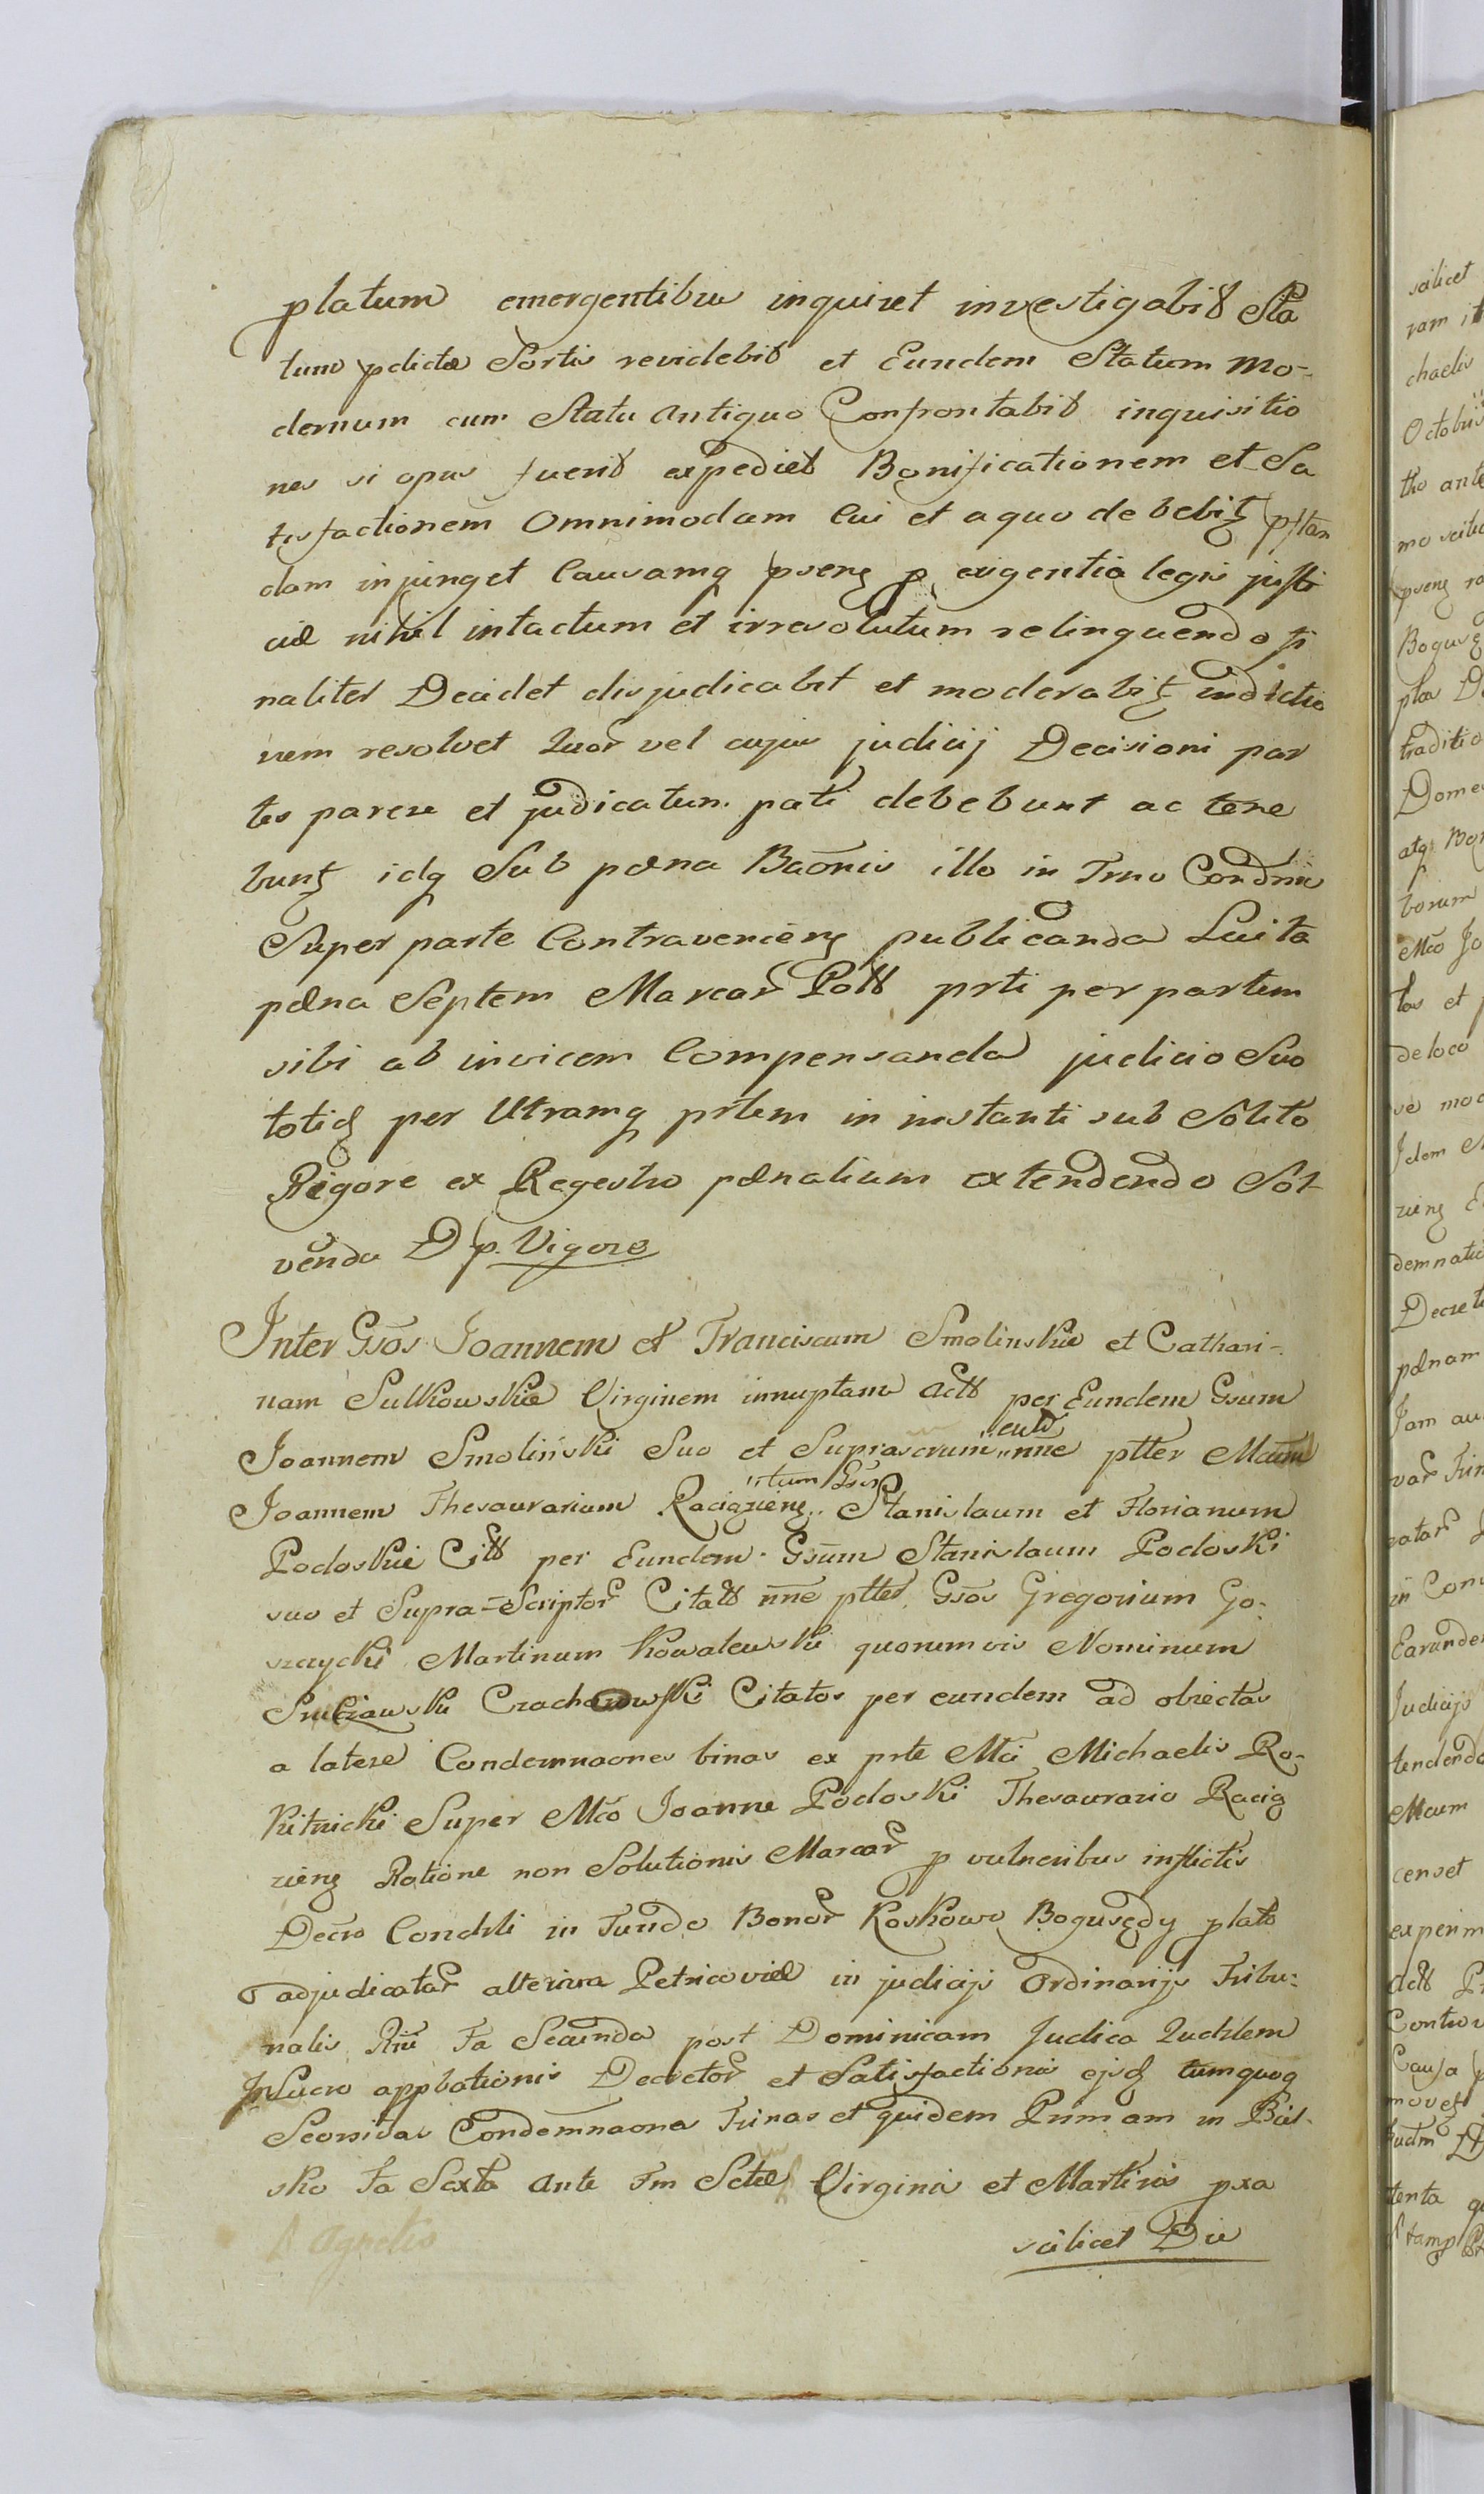 platum emergentibus inquiret investigabit Sta
tum pdictæ Sortis revidebit et Eundem Statum Mo-
dernum cum Statu Antiquo Confrontabit inquisitio
nes si opus fuerit expediet Bonificationem et Sa
tisfactionem Omnimodam Cui et a quo debebitz pstan
dam injunget Causamq psenz p exigentia legis justi
ciæ nihil intactum et irresolutum relinquendo fi
naliter Decidet disjudicabit et moderabitz indictio
nem resolvet quor vel cujus judicij Decisioni par
tes parere et judicatum pati debebunt ac tene
buntz idq Sub pœna Baõnis illo in Tmo Condnni
Super parte Contravenienz publicanda Luita
pœna Septem Marcar Poll prti per partem
sibi ab invicem Compensanda judicio Suo
totiq per Utramq prtem in instanti sub Solito
Rigore ex Regestro pœnalium extendendo Sol-
venda D p. Vigore
Inter Gsõs Joannem et Franciscum Smolinskie et Cathari-
nam Sulkowskie Virginem innuptam Actt per Eundem Gsum
Joannem Smoliński Suo et Suprascrum nne ptter Mcum
Joannem Thesaurarium Raciązienz Stanislaum et Florianum
Podoskie Citt per Eundem Gsum Stanislaum Podoski
suo et Supra-Scriptor Citatt nne ptter Gsõs Gregorium Go-
szczycki Martinum Kowalewski quorumvis Nominum
Czachowski Citatos per eundem ad obiectas
a latere Condemnaones binas ex prte Mci Michaelis Ro-
kitnicki Super Mco Joanne Podoski Thesaurario Racią
zienz Ratione non Solutionis Marcar p vulneribus inflictis
Decro Condnli in Fundo Bonor Koskowo Bogusędy plato
adjudicatar altera Petricoviæ in judicijs Ordinarijs Tribu-
nalis Rni Fa Secunda post Dominicam Judica
In Lucro appbationis Decretor et Satisfactionis ejsq tumquoq
Condemnaones Trinas et quidem Primam in Biel-
sko Fa Sexta Ante Fm Sctæ Virginis et Martiris pxa
Agnetis
scilicet Die